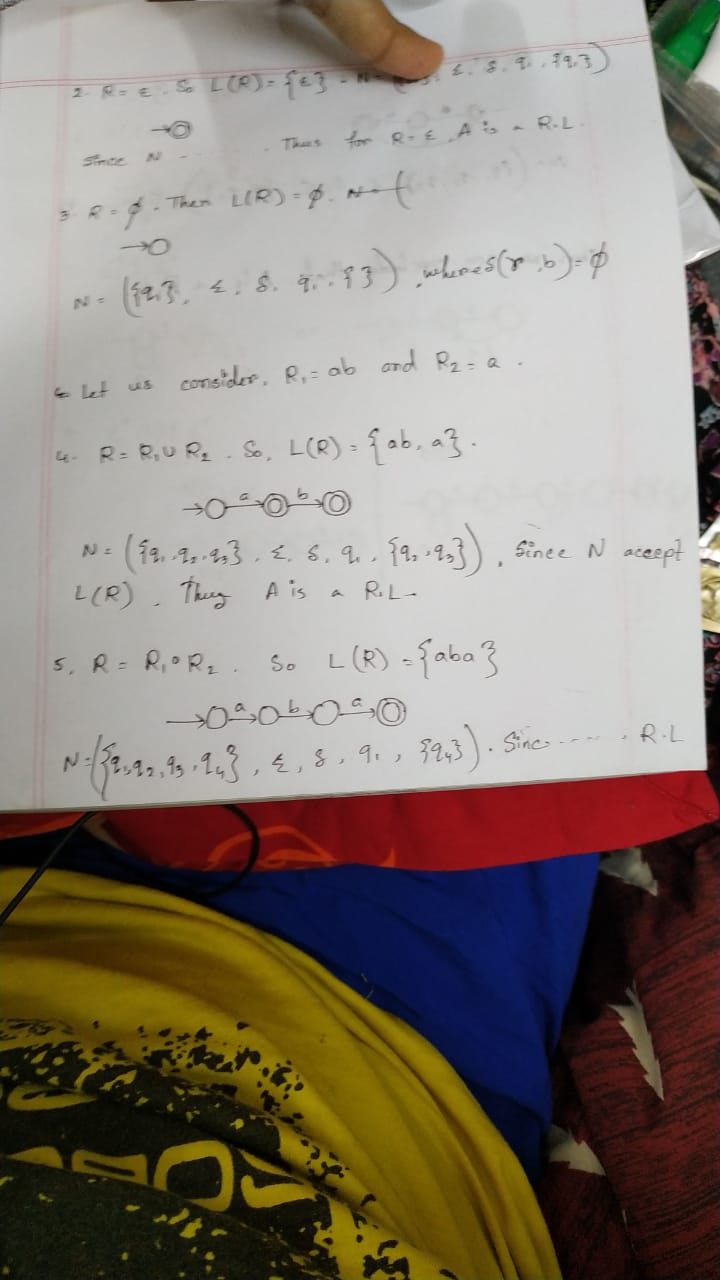 2. R = ε. So L(R) = {ε} . N = Σ, δ, q₁, {q₁})
Since N ....... . Thus for R = ε, A is a R.L.
3 R = ϕ. Then L(R) = ϕ.
N = ({q₁}, Σ, δ, q₁, { }), where δ(r, b) = ϕ
Let us consider, R₁ = ab and R₂ = a .
4. R = R₁ ∪ R₂ . So, L(R) = {ab, a}.
a b
N = ({q₁, q₂, q₃}, Σ, δ, q₁, {q₂, q₃}), Since N accept
L(R) . Thus A is a R.L.
5. R = R₁ ∘ R₂ . So L(R) = {aba}
a b a
N = ({q₁, q₂, q₃, q₄}, Σ, δ, q₁, {q₄}). Sinc ---- . R.L